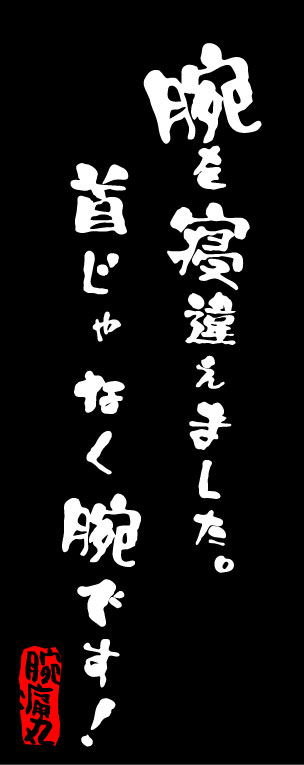 腕を寝違えました。
首じゃなく腕です！
腕痛丸